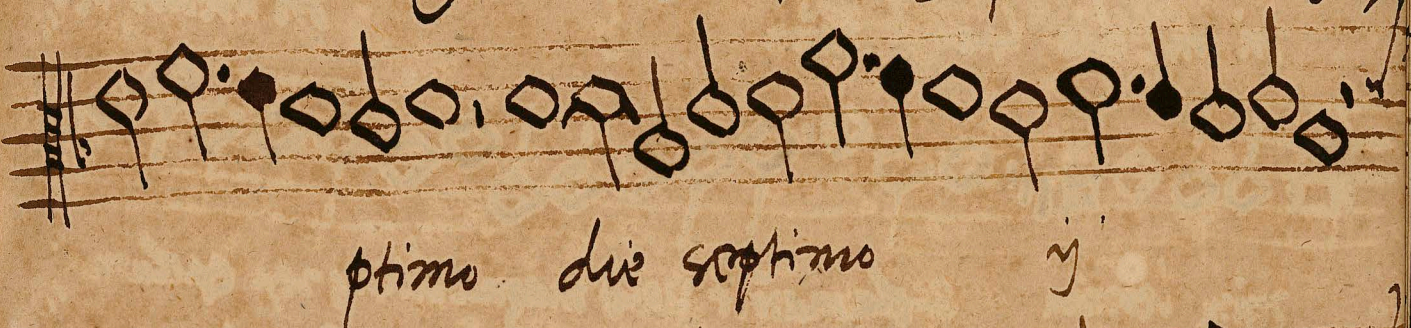 ptimo die septimo ij